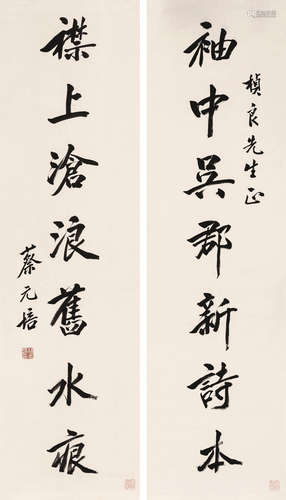 袖中吴郡新詩本
楨良先生正
襟上滄浪舊水痕
蔡元培